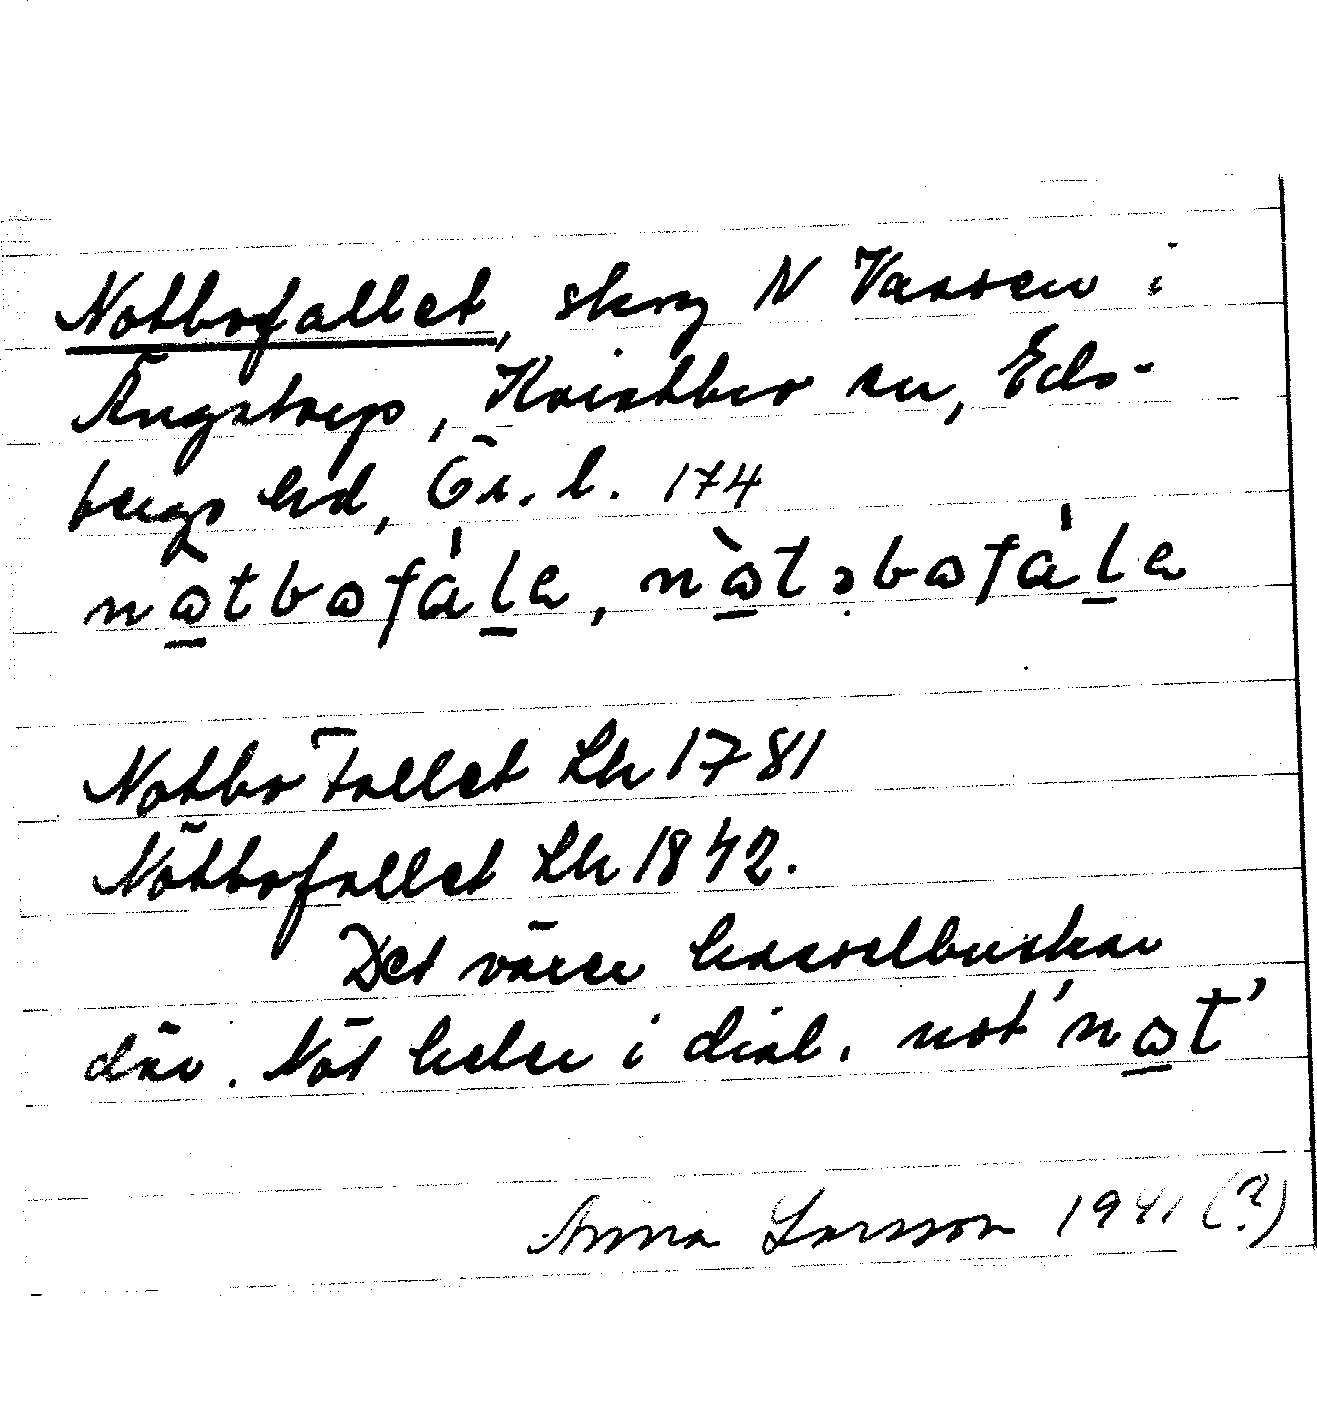 Notbofallet, skog N Vassen i
Ängstorp, Knistbro sn, Eds-
bergs hd, Ör. l. 174
nɷ̀tbɷfála, nɷ̀təbɷfála
Notbo Tallet Lk 1781
Nötbofallet Lk 1842.
Det växer hasselbuskar
där. Nöt heter i dial. not 'nɷt'
Anna Larsson 1941 (?)